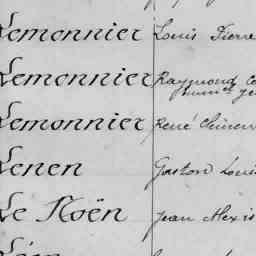 Lemonnier Louis Pierre
Lemonnier Raymond
Lemonnier René
Lenen Gaston Louis
Le Noën Jean Alexis